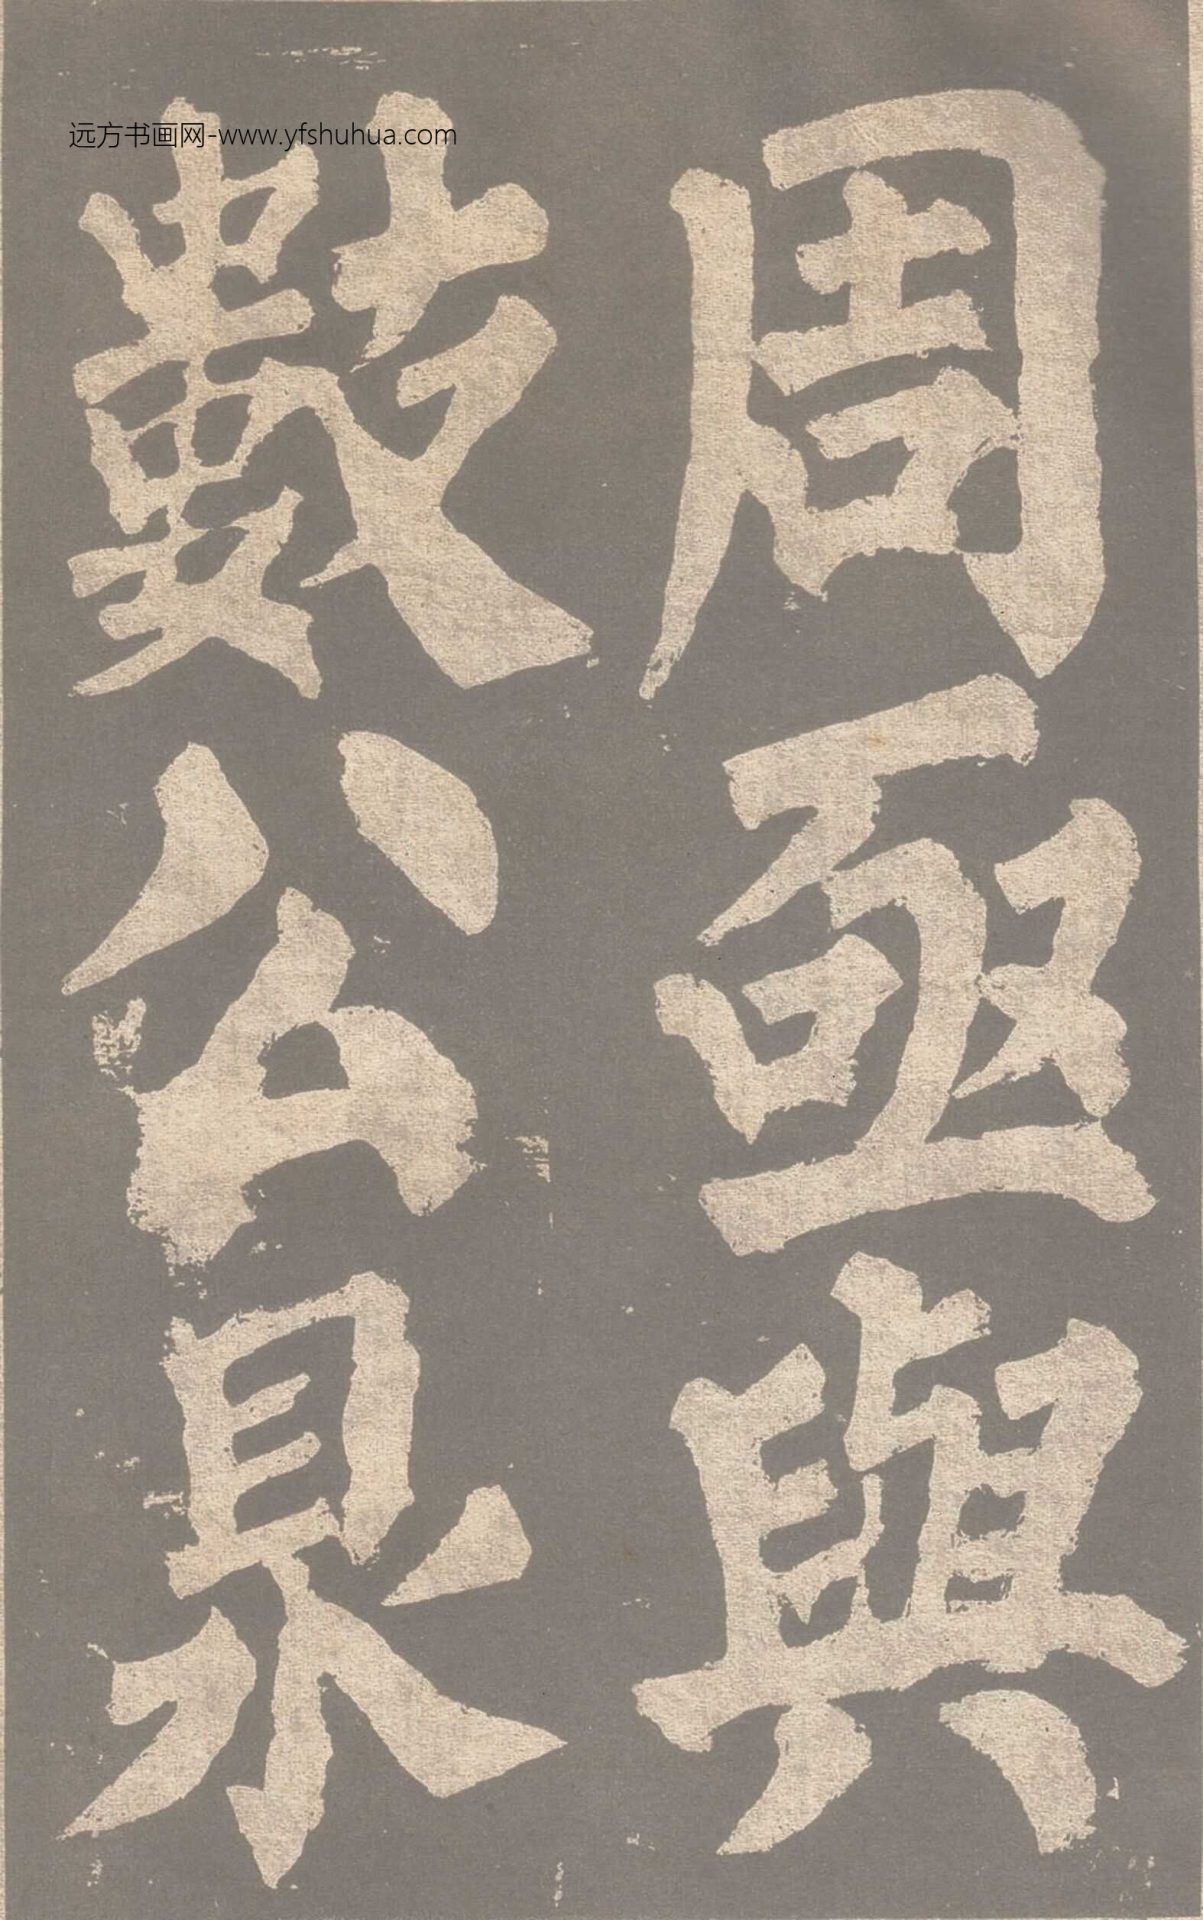 周亟與
數公泉
远方书画网-www.yfshuhua.com